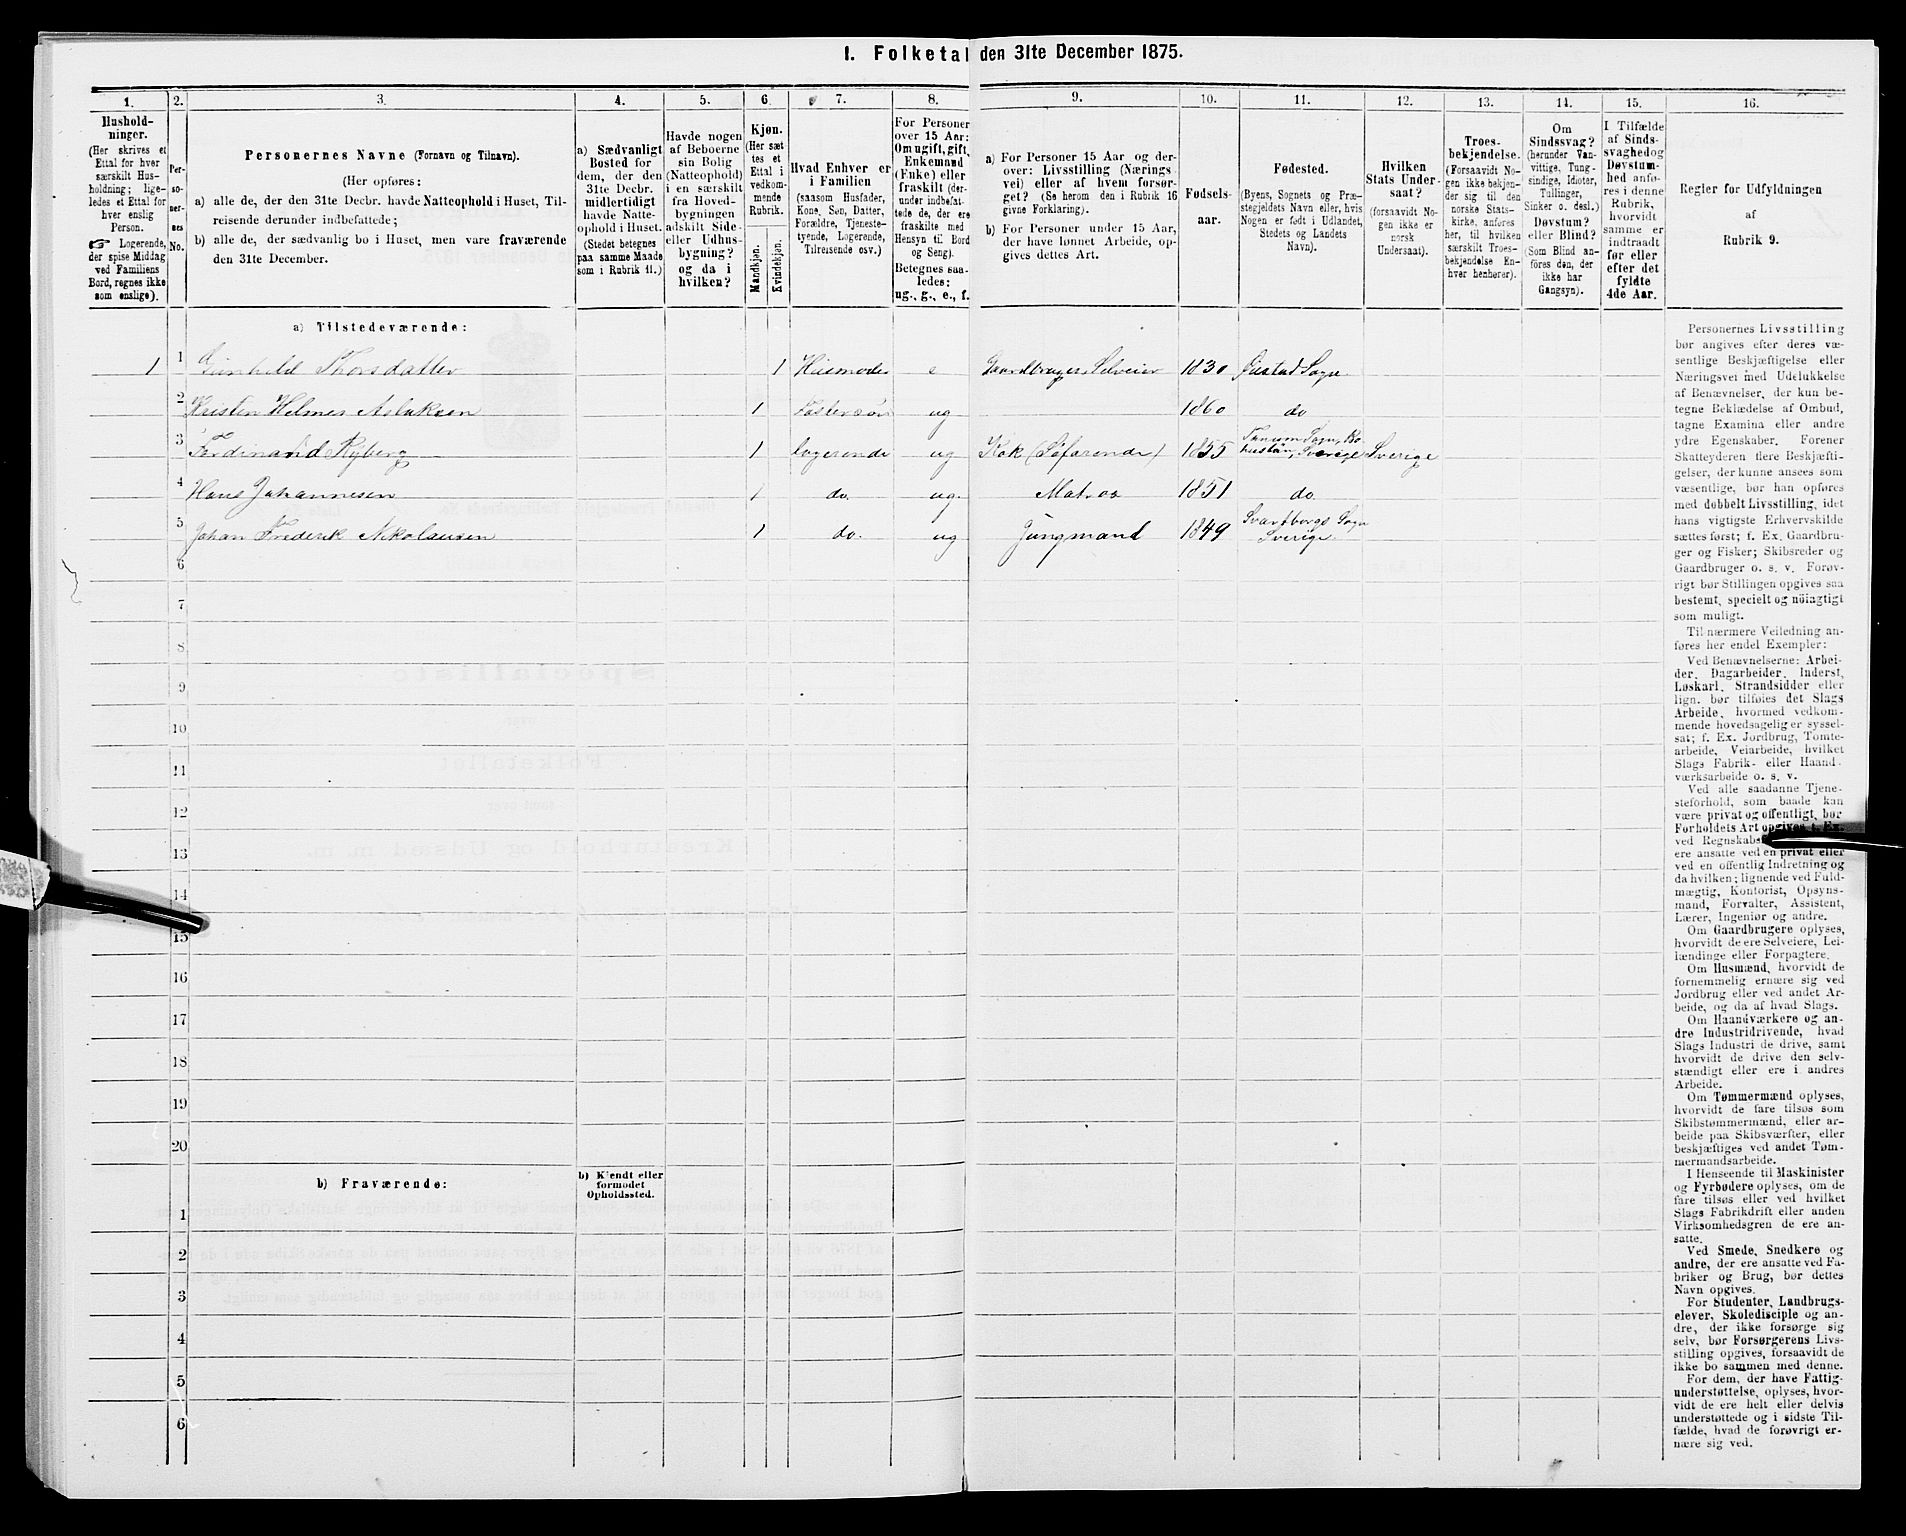 I. Folketal den 31te December 1875.
1. 2. 3. 4. 5. 6. 7. 8. 9. 10. 11. 12. 13. 14. 15. 16.
Hushold-
ninger.
(Her skrives et
Ettal for hver
særskilt Hus-
holdning; lige-
ledes et Ettal for
hver enslig
Person.
☞ Logerende,
der spise Middag
ved Familiens
Bord, regnes ikke
som enslige).
Per-
so-
ner-
nes
No.
Personernes Navne (Fornavn og Tilnavn).
(Her opføres:
a) alle de, der den 31te Decbr. havde Natteophold i Huset, Til-
reisende derunder indbefattede;
b) alle de, der sædvanlig bo i Huset, men vare fraværende
den 31te December.
a) Sædvanligt
Bosted for
dem, der den
31te Decbr.
midlertidigt
havde Natte-
ophold i Huset.
(Stedet betegnes
paa samme Maade
som i Rubrik 11.)
Havde nogen
af Beboerne
sin Bolig
(Natteophold)
i en særskilt
fra Hoved-
bygningen
adskilt Side-
eller Udhus-
bygning?
og da i
hvilken?
Kjøn.
(Her sæt
tes et
Ettal i
vedkom-
mende
Rubrik.
Mandkjøn.
Kvindekjøn.
Hvad Enhver er
i Familien
(saasom Husfader,
Kone, Søn, Datter,
Forældre, Tjeneste-
tyende, Logerende,
Tilreisende osv.)
For Personer
over 15 Aar:
Om ugift, gift,
Enkemand
(Enke) eller
fraskilt (der-
under indbefat-
tede de, der ere
fraskilte med
Hensyn til Bord
og Seng).
Betegnes saa-
ledes:
ug., g., e., f.
a) For Personer 15 Aar og der-
over: Livsstilling (Nærings-
vei) eller af hvem forsør-
get? (Se herom den i Rubrik 16
givne Forklaring).
b) For Personer under 15 Aar,
der have lønnet Arbeide, op-
gives dettes Art.
Fødsels-
aar.
Fødested.
(Byens, Sognets og Præ-
stegjeldets Navn eller, hvis
Nogen er født i Udlandet,
Stedets og Landets
Navn).
Hvilken
Stats Under-
saat?
(forsaavidt No-
gen ikke er
norsk
Undersaat).
Troes-
bekjendelse.
(Forsaavidt No-
gen ikke bekjen-
der sig til den
norske Stats-
kirke, anføres
her, til hvilken
særskilt Troes-
bekjendelse En-
hver henhører).
Om
Sindssvag?
(herunder Van-
vittige, Tung-
sindige, Idioter,
Tullinger,
Sinker o. desl.)
Døvstum?
eller Blind?
(Som Blind an-
føres den, der
ikke har
Gangsyn).
I Tilfælde
af Sinds-
svaghed og
Døvstum-
hed anfø-
res i denne
Rubrik,
hvorvidt
samme er
indtraadt
før eller
efter det
fyldte
4de Aar.
Regler for Udfyldningen
af
Rubrik 9.
a) Tilstedeværende:
1 1 Gunhild Thorsdatter 1 Husmoder e Gaardbruger, Selveier 1830 Øiestad Sogn
2 Kristen Helmer Aslaksen 1 Fostersøn ug 1860 do
3 Ferdinand Ryberg 1 logerende ug Kok (Søfarende) 1855 Tanum Sogn, Bo-
huslän, Sverige Sverige
4 Hans Johannesen 1 do. ug. Matros 1851 do
5 Johan Frederik Nikolausen 1 do. ug Jungmand 1849 Svartborgs Sogn
Sverige
6
7
8
9
10
11
12
13
14
15
16
17
18
19
20
b) Fraværende:
b) Kjendt eller
formodet
Opholdssted.
1
2
3
4
5
6
Personernes Livsstilling
bør angives efter deres væ-
sentlige Beskjæftigelse eller
Næringsvei med Udelukkelse
af Benævnelser, der kun be-
tegne Beklædelse af Ombud,
tagne Examina eller andre
ydre Egenskaber. Forener
Skatteyderen flere Beskjæfti-
gelser, der kunne ansees som
væsentlige, bør han opføres
med dobbelt Livsstilling, idet
hans vigtigste Erhvervskilde
sættes først; f. Ex. Gaardbru-
ger og Fisker; Skibsreder og
Gaardbruger o. s. v. Forøv-
rigt bør Stillingen opgives saa
bestemt, specielt og nöiagtigt
som muligt.
Til nærmere Veiledning an-
føres her endel Exempler:
Ved Benævnelserne: Arbei-
der, Dagarbeider, Inderst,
Løskarl, Strandsidder eller
lign. bør tilføies det Slags
Arbeide, hvormed vedkom-
mende hovedsagelig er syssel-
sat; f. Ex. Jordbrug, Tomte-
arbeide, Veiarbeide, hvilket
Slags Fabrik- eller Haand-
værksarbeide o. s. v.
Ved alle saadanne Tjene-
steforhold, som baade kan
være privat og offentligt, bør
Forholdets Art opgives, f. Ex.
ved Regnskabs
ere ansatte ved en privat eller
ved en offentlig Indretning og
da hvilken; lignende ved Fuld-
mægtig, Kontorist, Opsyns-
mand, Forvalter, Assistent,
Lærer, Ingeniør og andre.
Om Gaardbrugere oplyses,
hvorvidt de ere Selveiere, Lei-
lændinge eller Forpagtere.
Om Husmænd, hvorvidt de
fornemmelig ernære sig ved
Jordbrug eller ved andet Ar-
beide, og da af hvad Slags.
Om Haandværkere og an-
dre Industridrivende, hvad
Slags Industri de drive, samt
hvorvidt de drive den selv-
stændigt eller ere i andres
Arbeide.
Om Tømmermænd oplyses,
hvorvidt de fare tilsøs som
Skibstømmermænd, eller ar-
beide paa Skibsværfter, eller
beskjæftiges ved andet Tøm-
mermandsarbeide.
I Henseende til Maskinister
og Fyrbødere oplyses, om de
fare tilsøs eller ved hvilket
Slags Fabrikdrift eller anden
Virksomhedsgren de ere an-
satte.
Ved Smede, Snedkere og
andre, der ere ansatte ved Fa-
briker og Brug, bør dettes
Navn opgives.
For Studenter, Landbrugs-
elever, Skoledisciple og an-
dre, der ikke forsørge sig
selv, bør Forsørgerens Livs-
stilling opgives, forsaavidt de
ikke bo sammen med denne.
For dem, der have Fattig-
understøttelse, oplyses, hvor-
vidt de ere helt eller delvis
understøttede og i sidste Til-
fælde, hvad de forøvrigt er-
nære sig ved.